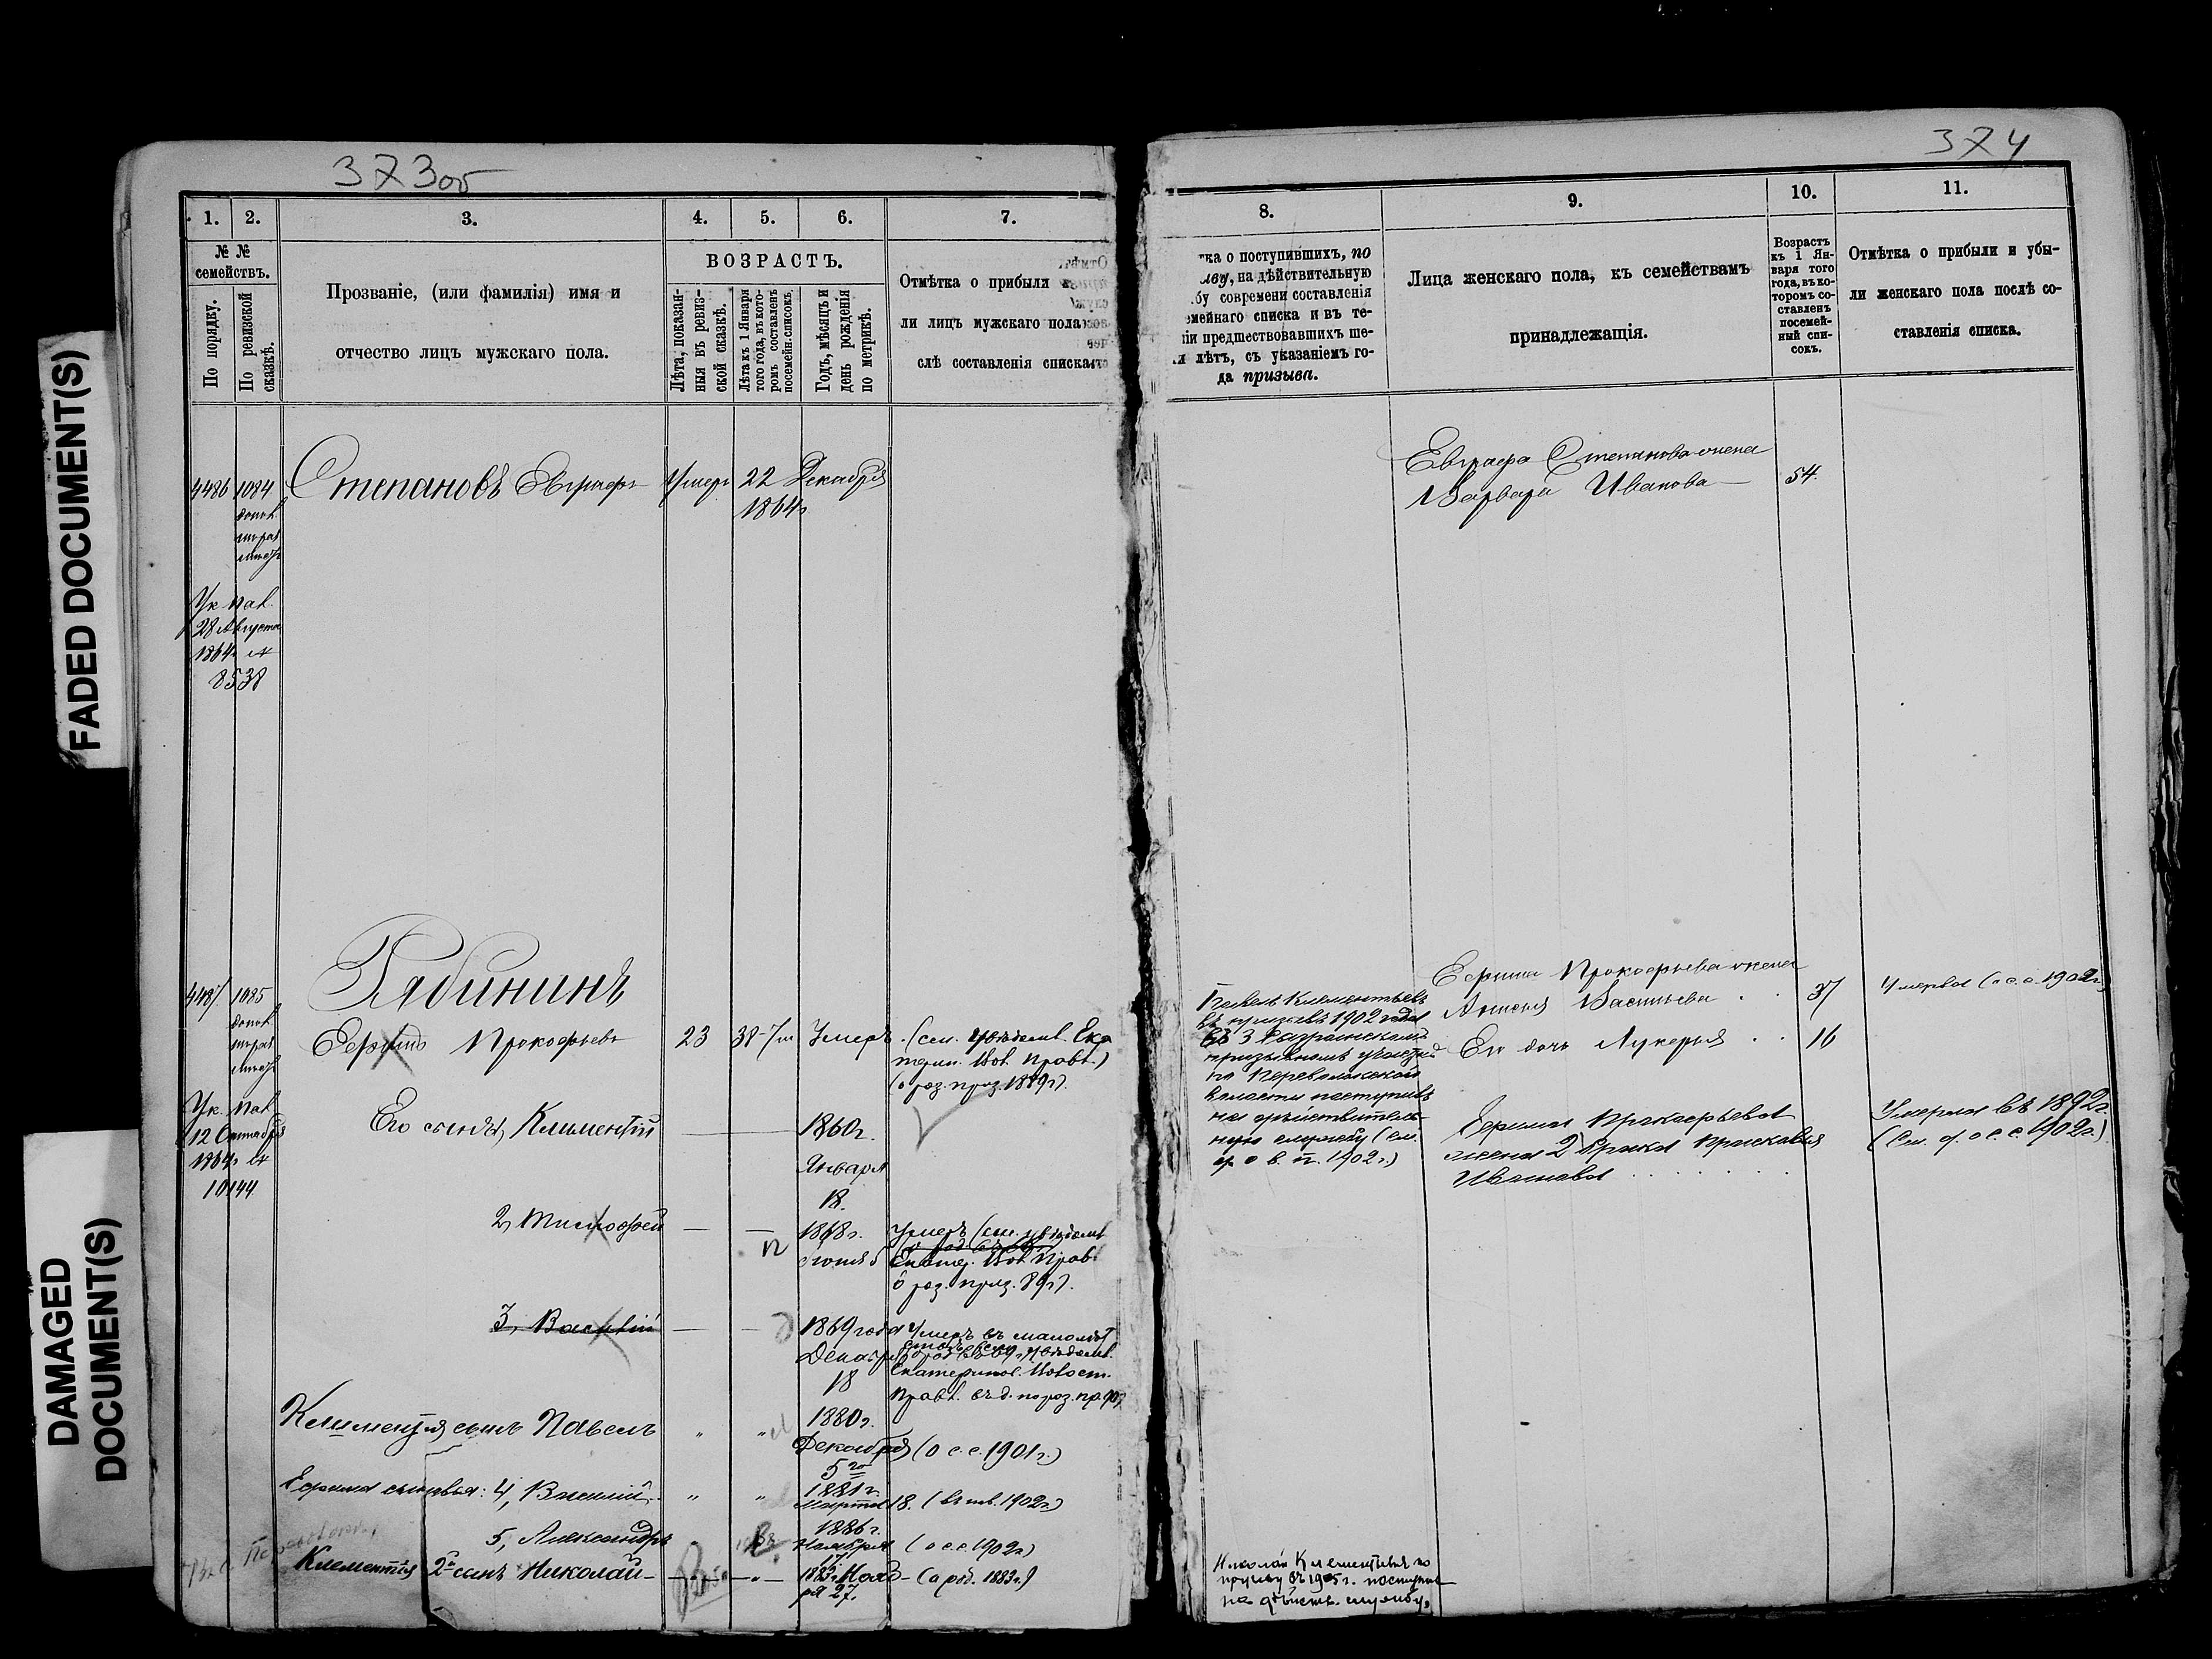 FADED DOCUMENT(S)
DAMAGED
DOCUMENT(S)
373об
1. 2. 3. 4. 5. 6. 7.
№ №
семействъ.
По порядку.
По ревизской
сказкѣ.
Прозваніе, (или фамилія) имя и
отчество лицъ мужскаго пола.
ВОЗРАСТЪ.
Лѣта, показан-
ныя въ ревиз-
ской сказкѣ.
Лѣта къ 1 Января
того года, въ кото-
ромъ составленъ
посемейн. списокъ.
Годъ, мѣсяцъ и
день рожденія
по метрикѣ.
Отмѣтка о прибыли
ли лицъ мужскаго пола
слѣ составленія списка
4486 1084 Степановъ Евграфъ Умеръ 22 Декабря
1864г
Ук. 
28 Августа
1864г №
8538
Рябининъ
4487 1085
Ефимъ Прокофьевъ 23 38-7м Умеръ (см. увѣдомл. Ека
терин. Прав.)
(о раз. приз. 1889г).
Ук. 
12 
1864г №
10144
Его сынъ 1, Климентій 1860г.
Января
18.
2, Тимофей 1868г. Умеръ (см. увѣдомл
Екатер. Прав.
о раз. приз. 89г).
3, Василій 1869 года Умеръ въ малолѣт
Декабря
18
Екатеринов. 
Правл.
Климентія сынъ Павелъ " " 1880г.
Декабря (о с. с. 1901г.)
5го
Ефима сыновья: 4, Василій " " 1881г.
Марта 18. ( 1902г.)
5, Александръ 1886г.
Ноября (о с. с. 1902г)
17
Климентія 2й сынъ Николай - " - 1883г. Нояб- (о род. 1883г.)
ря 27.
374
8. 9. 10. 11.
ка о поступившихъ, по
ву, на дѣйствительную
бу современи составленія
мейнаго списка и въ те-
ніи предшествовавшихъ ше-
лѣтъ, съ указаніемъ го-
да призыва.
Лица женскаго пола, къ семействамъ
принадлежащія.
Возрастъ
къ 1 Ян-
варя того
года, въ ко-
торомъ со-
ставленъ
посемей-
ный спи-
сокъ.
Отмѣтка о прибыли и убы-
ли женскаго пола послѣ со-
ставленія списка.
Евграфа Степанова жена
Варвара Иванова 54.
Павелъ Климентьевъ
въ призывъ 1902 года
въ 3 Сызранскомъ
призывномъ участкѣ
по Переволокской
волости поступилъ
на дѣйствитель-
ную службу (см.
о в. п. 1902г.)
Ефима Прокофьева жена
Васильева . . 37 Умерла (о с. с. 1902г)
Его дочь Лукерья . . 16
Ефима Прокофьева
жена 2 брака Прасковья
Иванова . . . . .
Умерла въ 1892г.
(См. о с. с. 1902г.)
Николай Климентьевъ по
призыву въ 1905г. поступилъ
на дѣйств. службу.